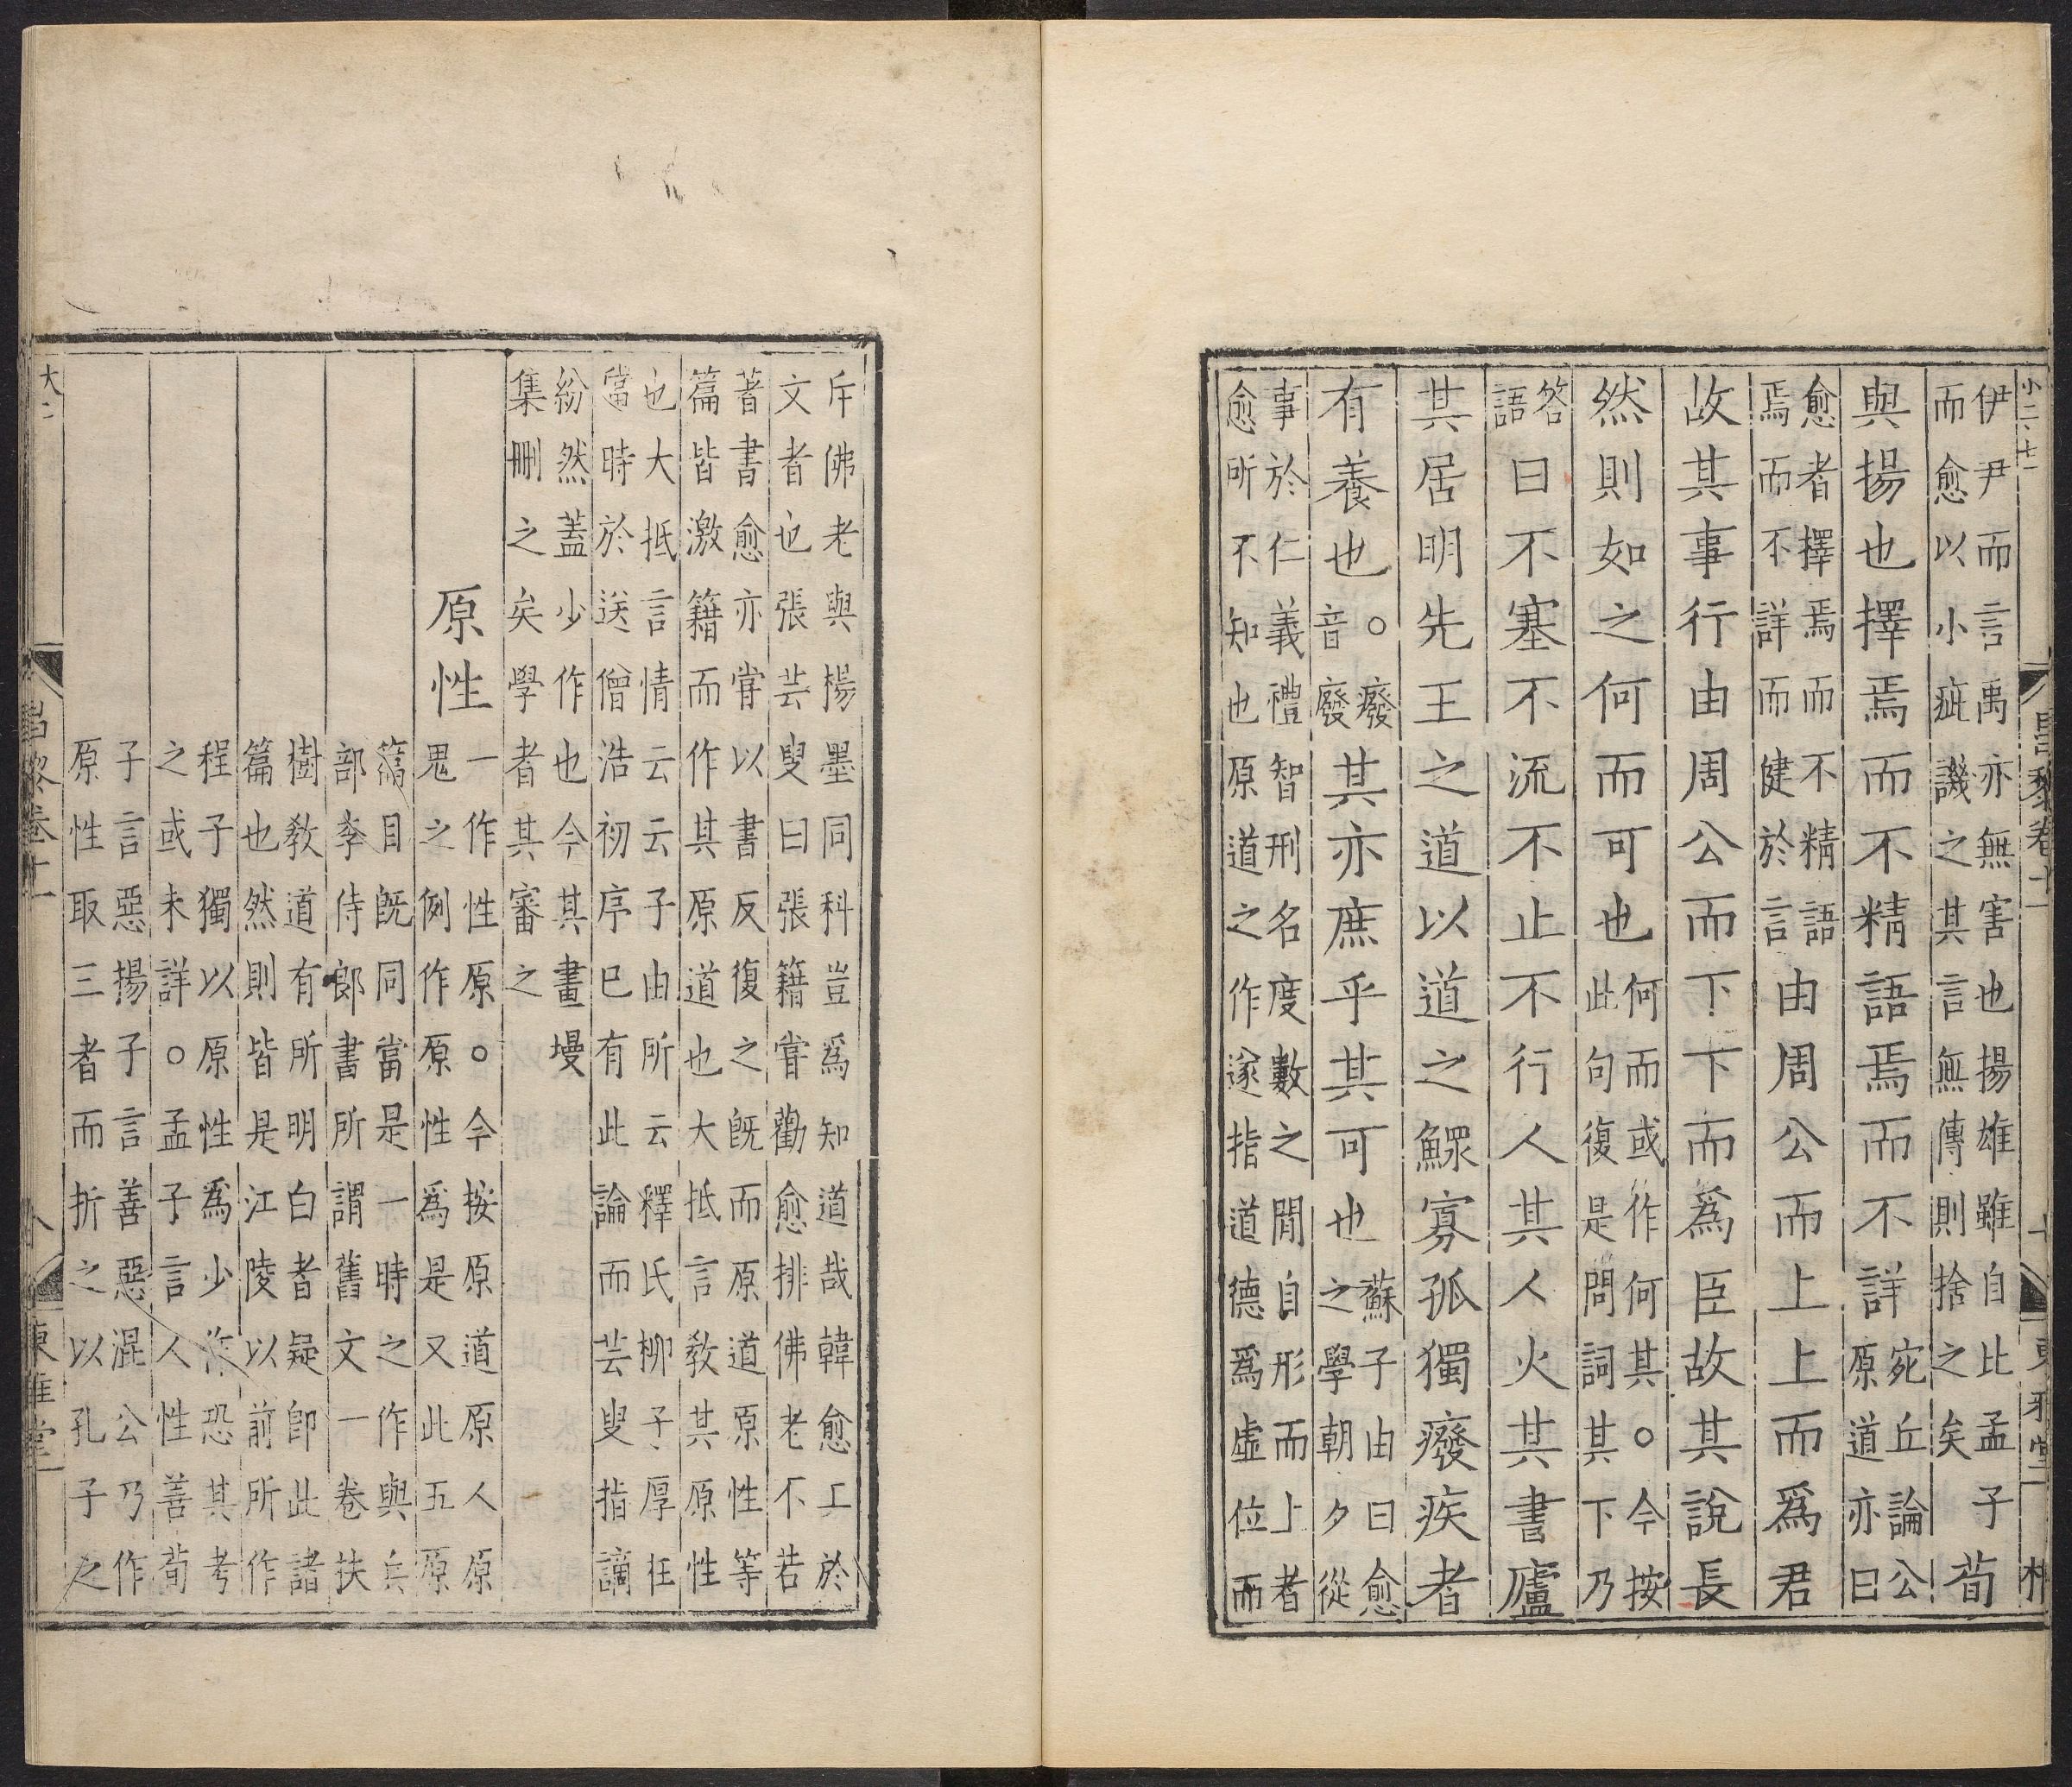 小二百七十
昌黎卷十一
七
東雅堂
伊尹而言禹亦無害也揚雄雖自比孟子
而愈以小疵譏之其言無傳則捨之矣
荀
與揚也擇焉而不精語焉而不詳
宛丘論公
原道亦曰
愈者擇焉而不精語
焉而不詳而健於言
由周公而上上而爲君
故其事行由周公而下下而爲臣故其說長
然則如之何而可也
何而或作何其○今按
此句復是問詞其下乃
答
語
曰不塞不流不止不行人其人火其書廬
其居明先王之道以道之鰥寡孤獨癈疾者
有養也
○癈
音廢
其亦庶乎其可也
蘇子由曰愈
之學朝夕從
事於仁義禮智刑名度數之間自形而上者
愈所不知也原道之作遂指道德爲虛位而
斥佛老與楊墨同科豈爲知道哉韓愈工於
文者也張芸叟曰張籍嘗勸愈排佛老不若
著書愈亦嘗以書反復之旣而原道原性等
篇皆激籍而作其原道也大抵言敎其原性
也大抵言情云云子由所云釋氏柳子厚在
當時於送僧浩初序已有此論而芸叟指謫
紛然蓋少作也今其畫墁
集刪之矣學者其審之
原性
一作性原○今按原道原人原
鬼之例作原性爲是又此五原
篇目旣同當是一時之作與兵
部李侍郎書所謂舊文一卷扶
樹敎道有所明白者疑卽此諸
篇也然則皆是江陵以前所作
程子獨以原性爲少作恐其考
之或未詳○孟子言人性善荀
子言惡揚子言善惡混公乃作
原性取三者而折之以孔子之
昌黎卷十一
八
東雅堂